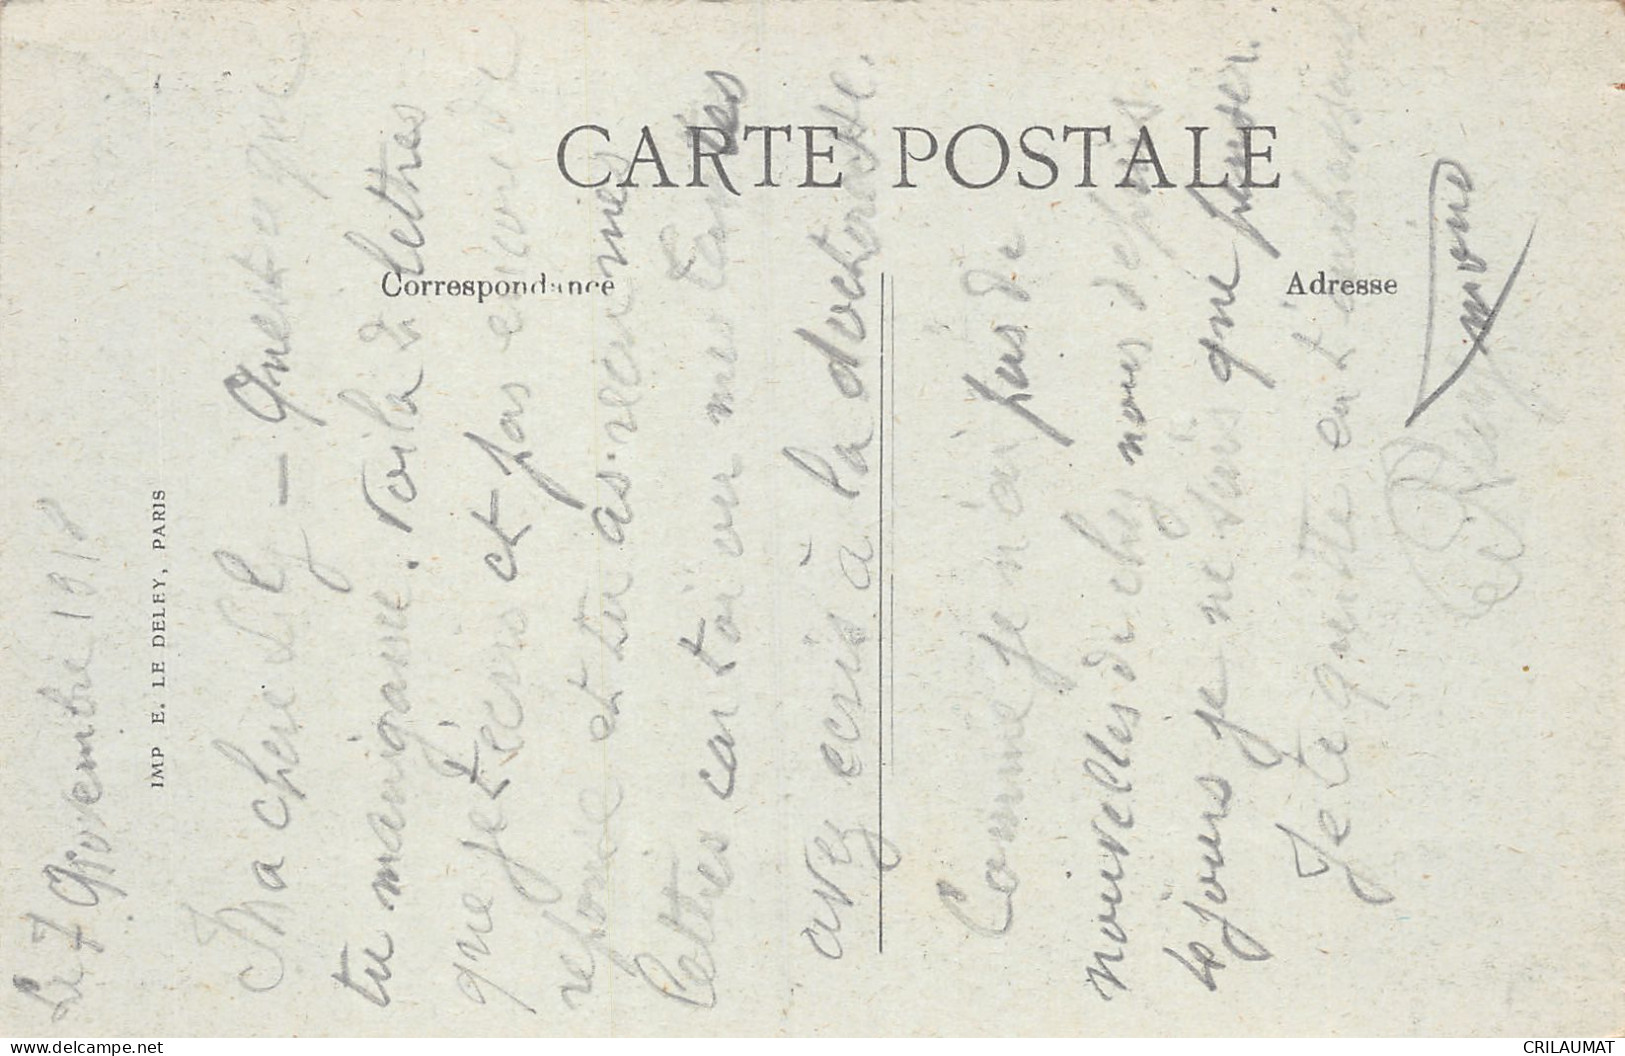 CARTE POSTALE
Correspondance
Adresse
IMP E. LE DELEY, PARIS
Le 7 Novembre 1918
Ma chère Lily — Qu'est ce que
tu manigasse. Voila 2 lettres
que je t'écris et pas encore de
reponse et tu as reçu mes
lettres car toi ou mes tantes
avez ecris à la doctoresse.
Comme je n'ai pas de
nouvelles de chez nous depuis
10 jours je ne sais que penser.
Je te quitte en t'embrassant
mono
CRILAUMAT